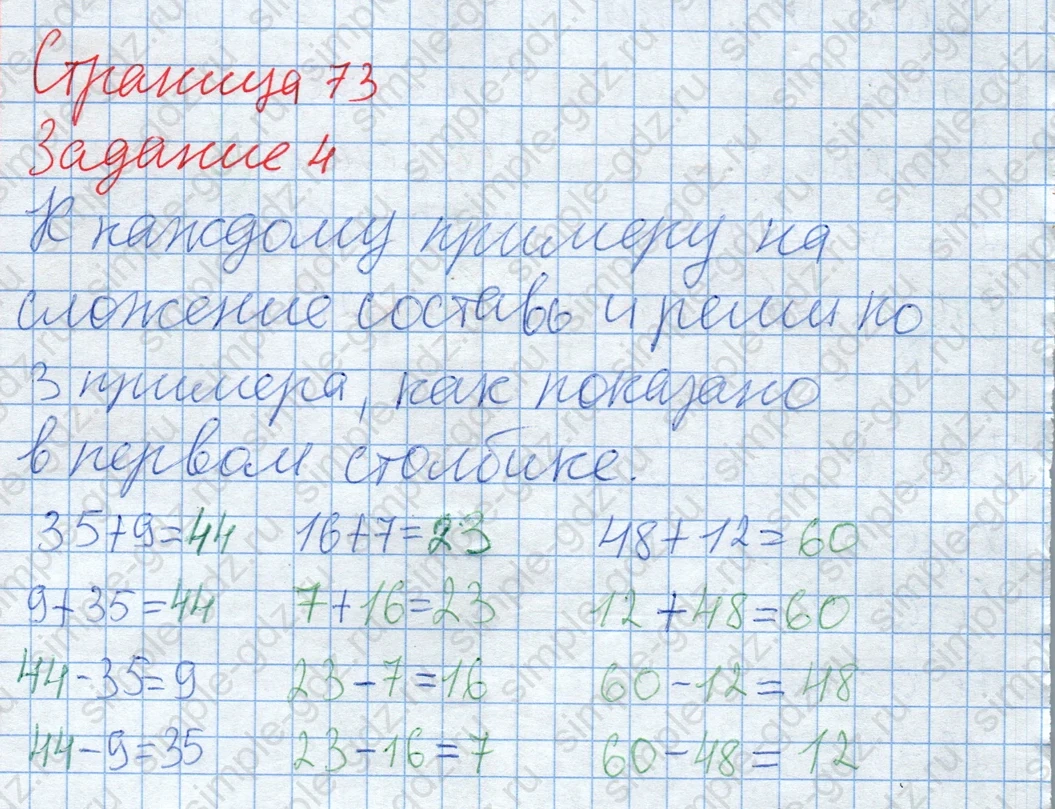 Страница 73
Задание 4
К каждому примеру на
сложение составь и реши по
3 примера, как показано
в первом столбике.
35+9=44 16+7=23 48+12=60
9+35=44 7+16=23 12+48=60
44-35=9 23-7=16 60-12=48
44-9=35 23-16=7 60-48=12
simple-gdz.ru